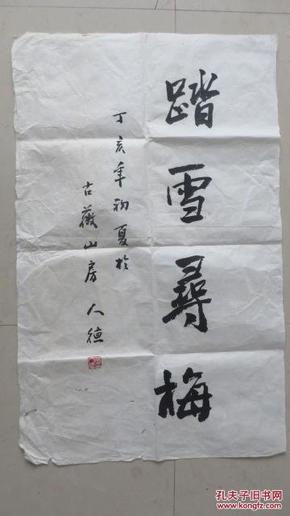 踏雪尋梅
丁亥年初夏於
古薇山房 人德
孔夫子旧书网